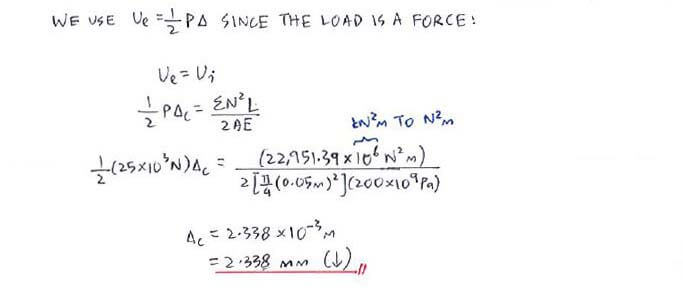 WE USE Ue = 1/2 PΔ SINCE THE LOAD IS A FORCE:
Ue = Ui
1/2 PΔc = ΣN²L / 2AE
kN²m TO N²m
1/2 (25×10³N)Δc = (22,951.39 × 10⁶ N²m) / 2[π/4 (0.05m)²](200×10⁹Pa)
Δc = 2.338 ×10⁻³m
= 2.338 mm (↓)